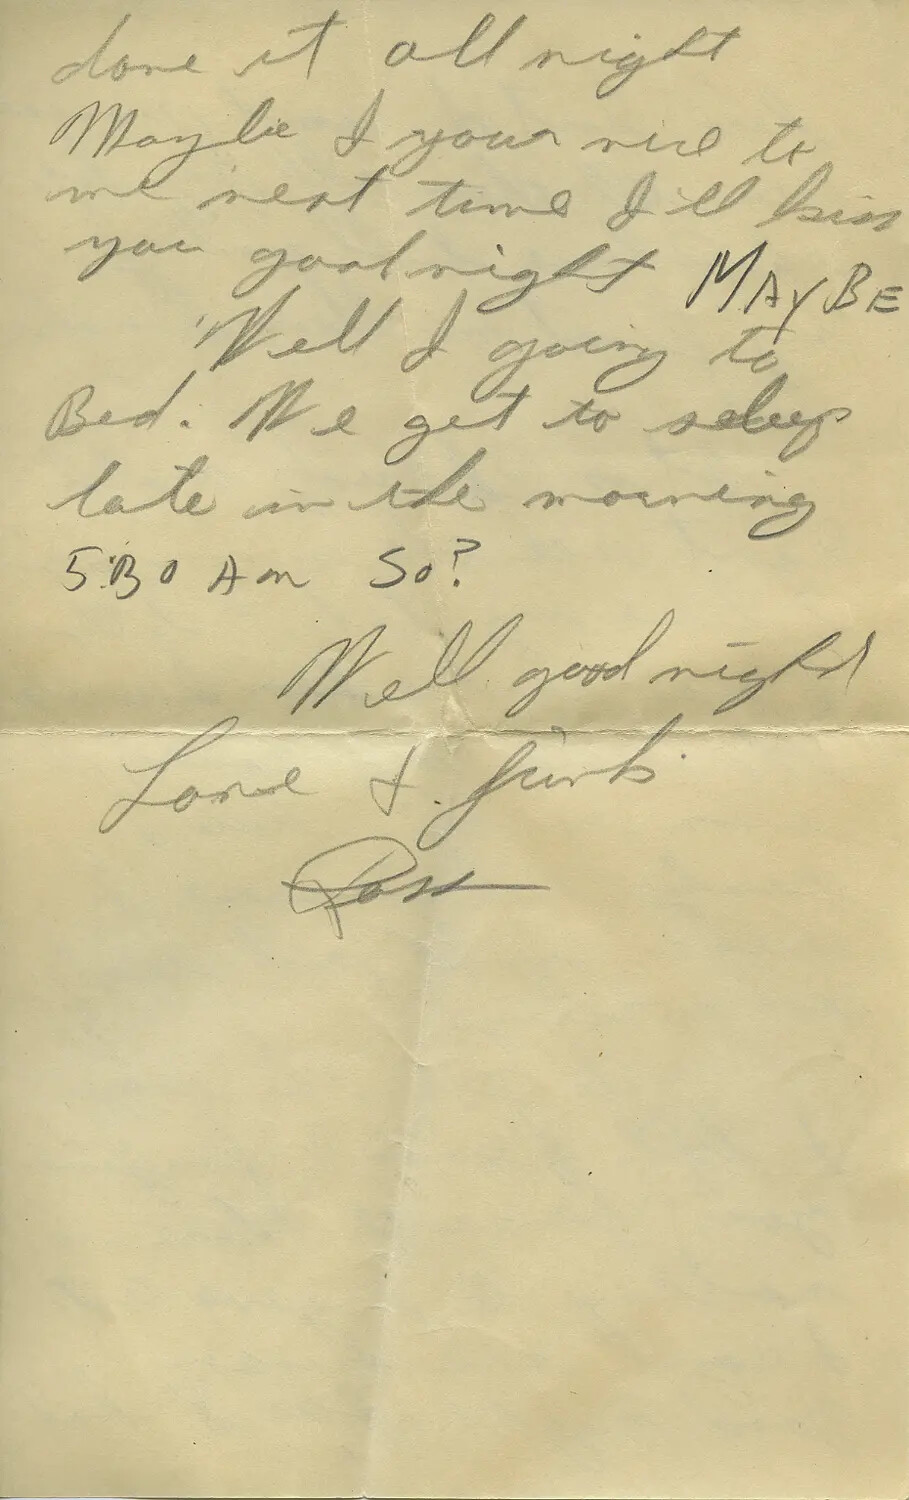 done it all night
Maybe I your nice to
me next time I'll kiss
you goodnight MAYBE
Well I going to
Bed. We get to sleep
late in the morning
5:30 Am So?
Well good night
Love & Junk.
Ross